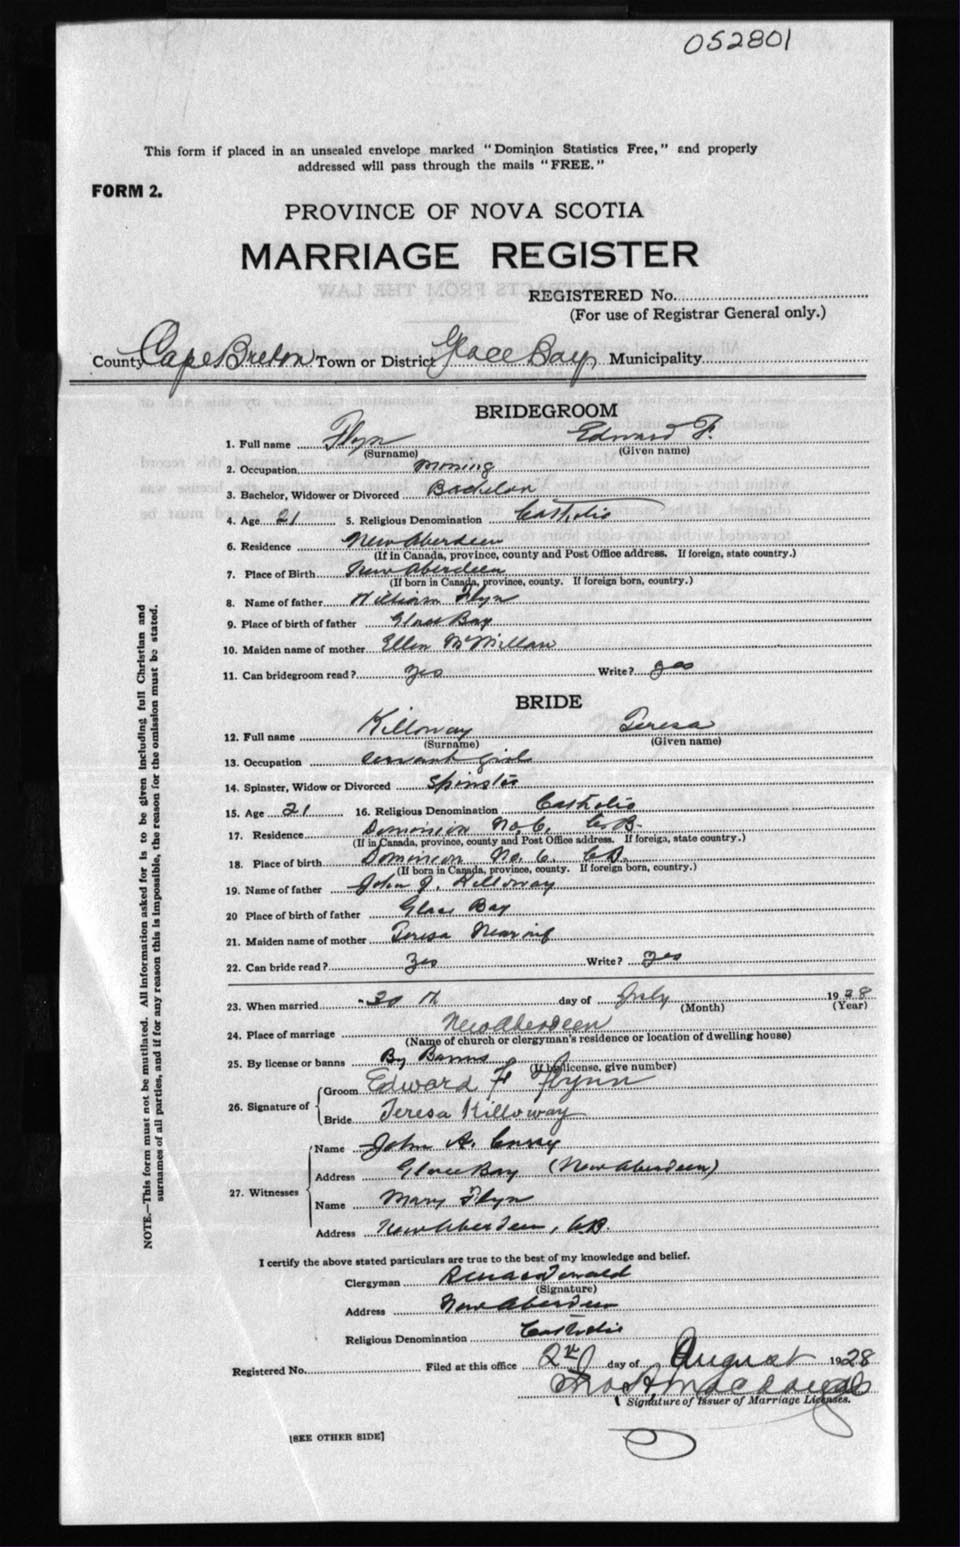 052801
This form if placed in an unsealed envelope marked "Dominion Statistics Free," and properly
addressed will pass through the mails "FREE."
FORM 2.
PROVINCE OF NOVA SCOTIA
MARRIAGE REGISTER
REGISTERED No.
(For use of Registrar General only.)
County Cape Breton Town or District Glace Bay Municipality
BRIDEGROOM
1. Full name Flyn Edward F.
(Surname) (Given name)
2. Occupation Mining
3. Bachelor, Widower or Divorced Bachelor
4. Age 21 5. Religious Denomination Catholic
6. Residence New Aberdeen
(If in Canada, province, county and Post Office address. If foreign, state country.)
7. Place of Birth New Aberdeen
(If born in Canada, province, county. If foreign born, country.)
8. Name of father William Flyn
9. Place of birth of father Glace Bay
10. Maiden name of mother Ellen McMillan
11. Can bridegroom read? Yes Write? yes
BRIDE
12. Full name Killoway Teresa
(Surname) (Given name)
13. Occupation servant girl
14. Spinster, Widow or Divorced Spinster
15. Age 21 16. Religious Denomination Catholic
17. Residence Dominion No. 6, C.B.
(If in Canada, province, county and Post Office address. If foreign, state country.)
18. Place of birth Dominion No. 6. C.B.
(If born in Canada, province, county. If foreign born, country.)
19. Name of father John J. Killoway
20 Place of birth of father Glace Bay
21. Maiden name of mother Teresa
22. Can bride read? Yes Write? yes
23. When married 30th day of July 1928
(Month) (Year)
24. Place of marriage New Aberdeen
(Name of church or clergyman's residence or location of dwelling house)
25. By license or banns By Banns
(If by license, give number)
26. Signature of Groom Edward F Flynn
Bride Teresa Killoway
27. Witnesses Name John A.
Address Glace Bay (New Aberdeen)
Name Mary Flyn
Address New Aberdeen, C.B.
I certify the above stated particulars are true to the best of my knowledge and belief.
Clergyman
(Signature)
Address New Aberdeen
Religious Denomination Catholic
Registered No. Filed at this office 2nd day of August 1928
Signature of Issuer of Marriage Licenses.
[SEE OTHER SIDE]
NOTE.—This form must not be mutilated. All information asked for is to be given including full Christian and
surnames of all parties, and if for any reason this is impossible, the reason for the omission must be stated.